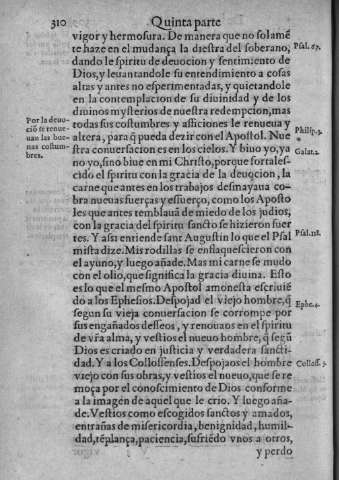 310 Quinta parte
vigor y hermosura. De manera que no solamẽ
te haze en el mudança la diestra del soberano,
dando le spiritu de deuocion y sentimiento de
Dios, y leuantandole su entendimiento a cosas
altas y antes no esperimentadas, y quietandole
en la contemplacion de su diuinidad y de los
diuinos mysterios de nuestra redempcion, mas
todas sus costumbres y afsiciones le renueua y
altera, para q̃ pueda dezir con el Apostol. Nue
stra conuersacion es en los cielos. Y biuo yo, ya
no yo, sino biue en mi Christo, porque fortales-
cido el spiritu con la gracia de la deuocion, la
carne que antes en los trabajos desmayaua co-
bra nueuas fuerças y esfuerço, como los Aposto
les que antes temblauã de miedo de los judios,
con la gracia del spiritu sancto se hizieron fuer
tes. Y assi entiende sant Augustin lo que el Psal
mista dize. Mis rodillas se enflaquescieron con
el ayuno, y luego añade. Mas mi carne se mudo
con el olio, que significa la gracia diuina. Esto
es lo que el mesmo Apostol amonesta escriuiẽ
do a los Ephesios. Despojad el viejo hombre, q̃
segun su vieja conuersacion se corrompe por
sus engañados desseos, y renouaos en el spiritu
de vr̃a alma, y vestios el nueuo hombre, q̃ segũ
Dios es criado en justicia y verdadera sancti-
dad. Y a los Collossenses. Despojaos el hombre
viejo con sus obras, y vestios el nueuo, que se re
moça por el conoscimiento de Dios conforme
a la imagen de aquel que le crio. Y luego aña-
de. Vestios como escogidos sanctos y amados,
entrañas de misericordia, benignidad, humil-
dad, tẽplança, paciencia, sufriẽdo vnos a otros,
y perdo
Por la deuo-
ciõ se renue-
uan las bue-
nas costum-
bres.
Psal. 67.
Philip. 3.
Galat. 2.
Psal. 118.
Ephe. 4.
Coloss. 3.